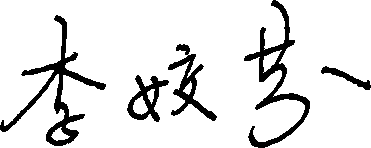 李姣芬